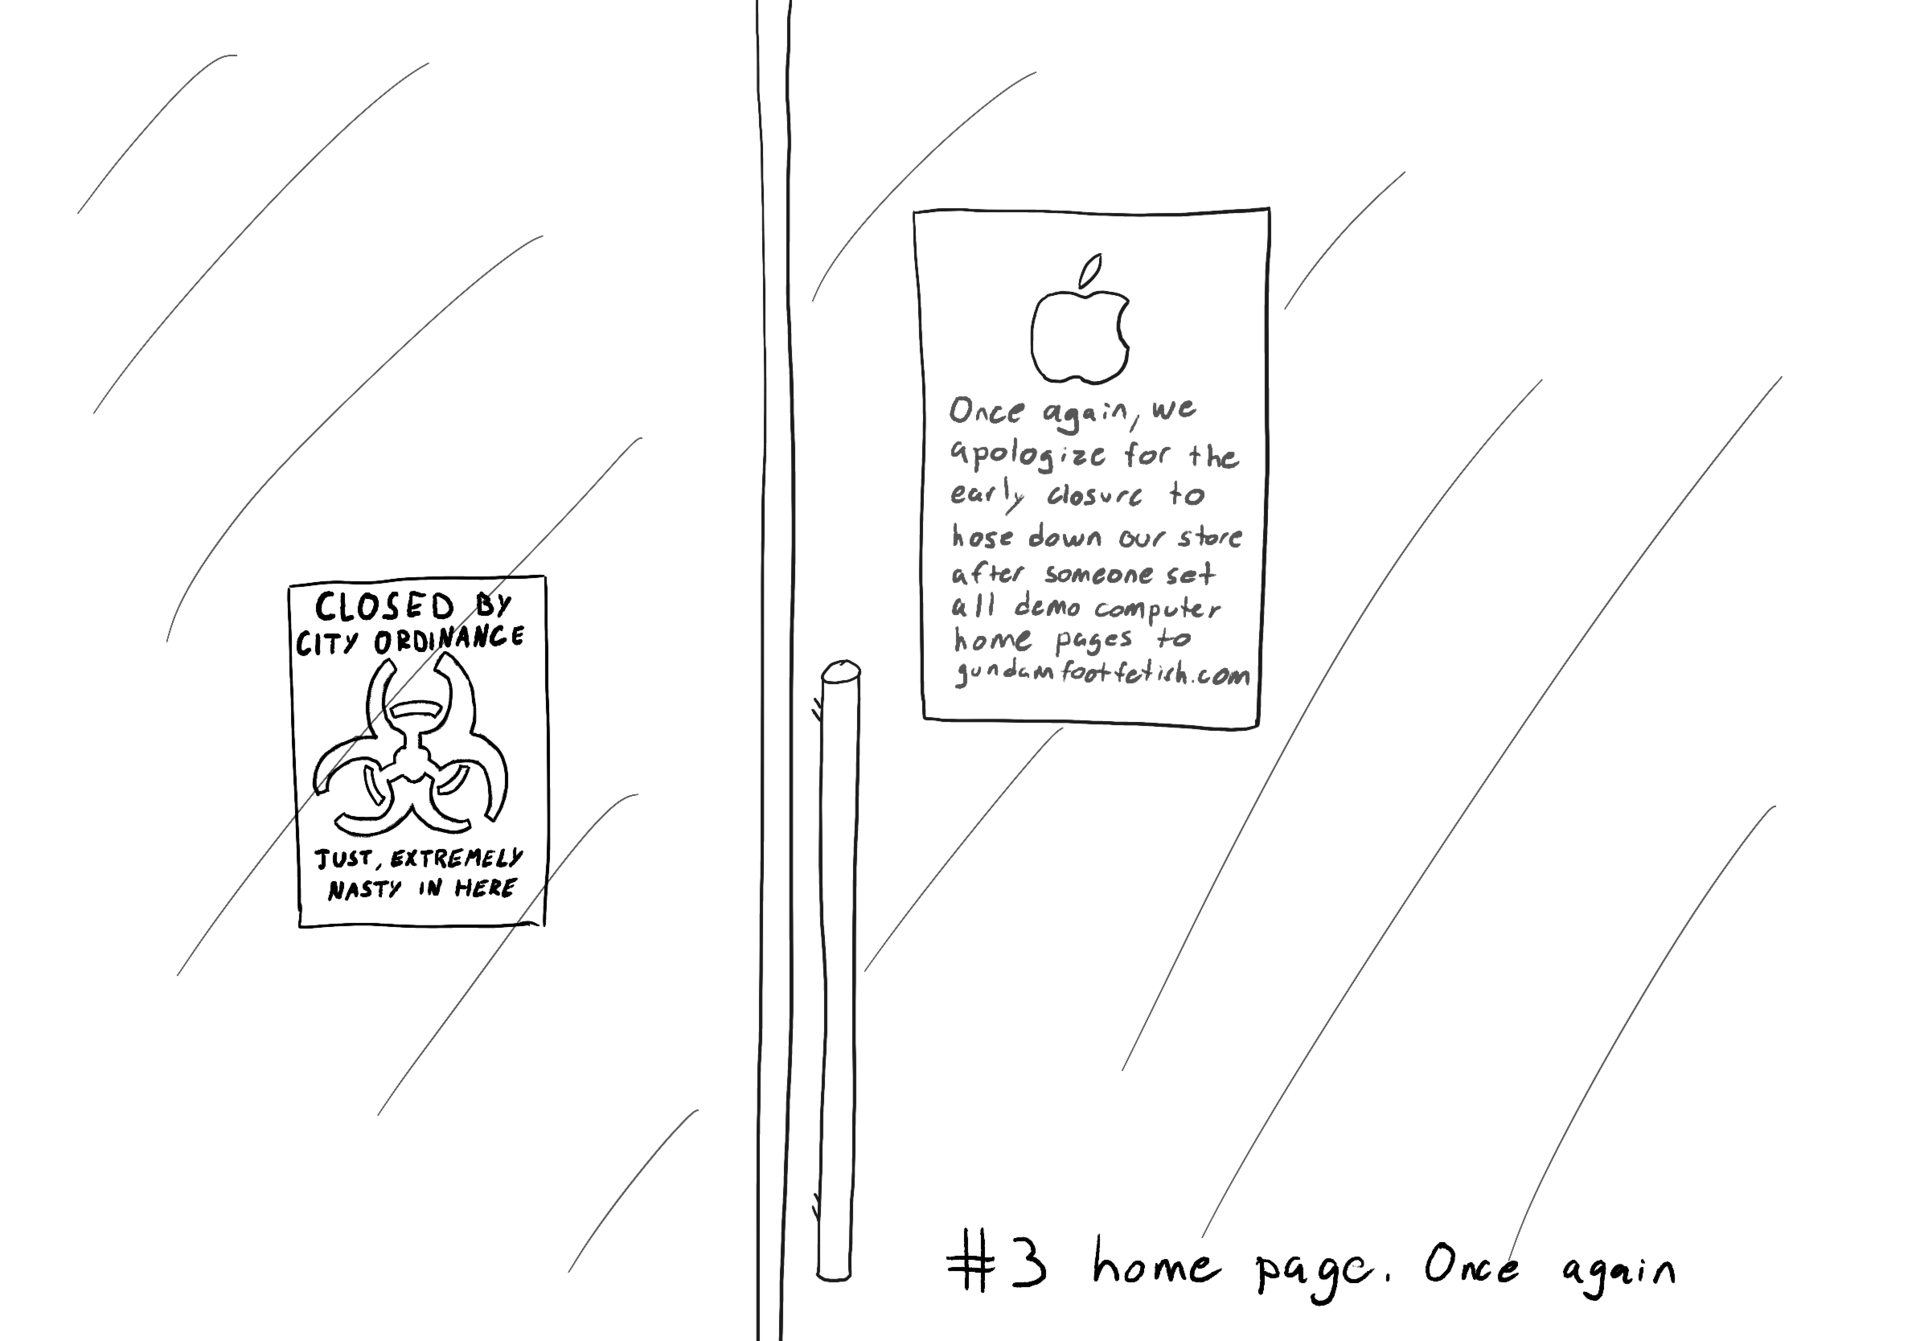 CLOSED BY
CITY ORDINANCE
JUST, EXTREMELY
NASTY IN HERE
Once again, we
apologize for the
early closure to
hose down our store
after someone set
all demo computer
home pages to
gundamfootfetish.com
#3 home page. Once again